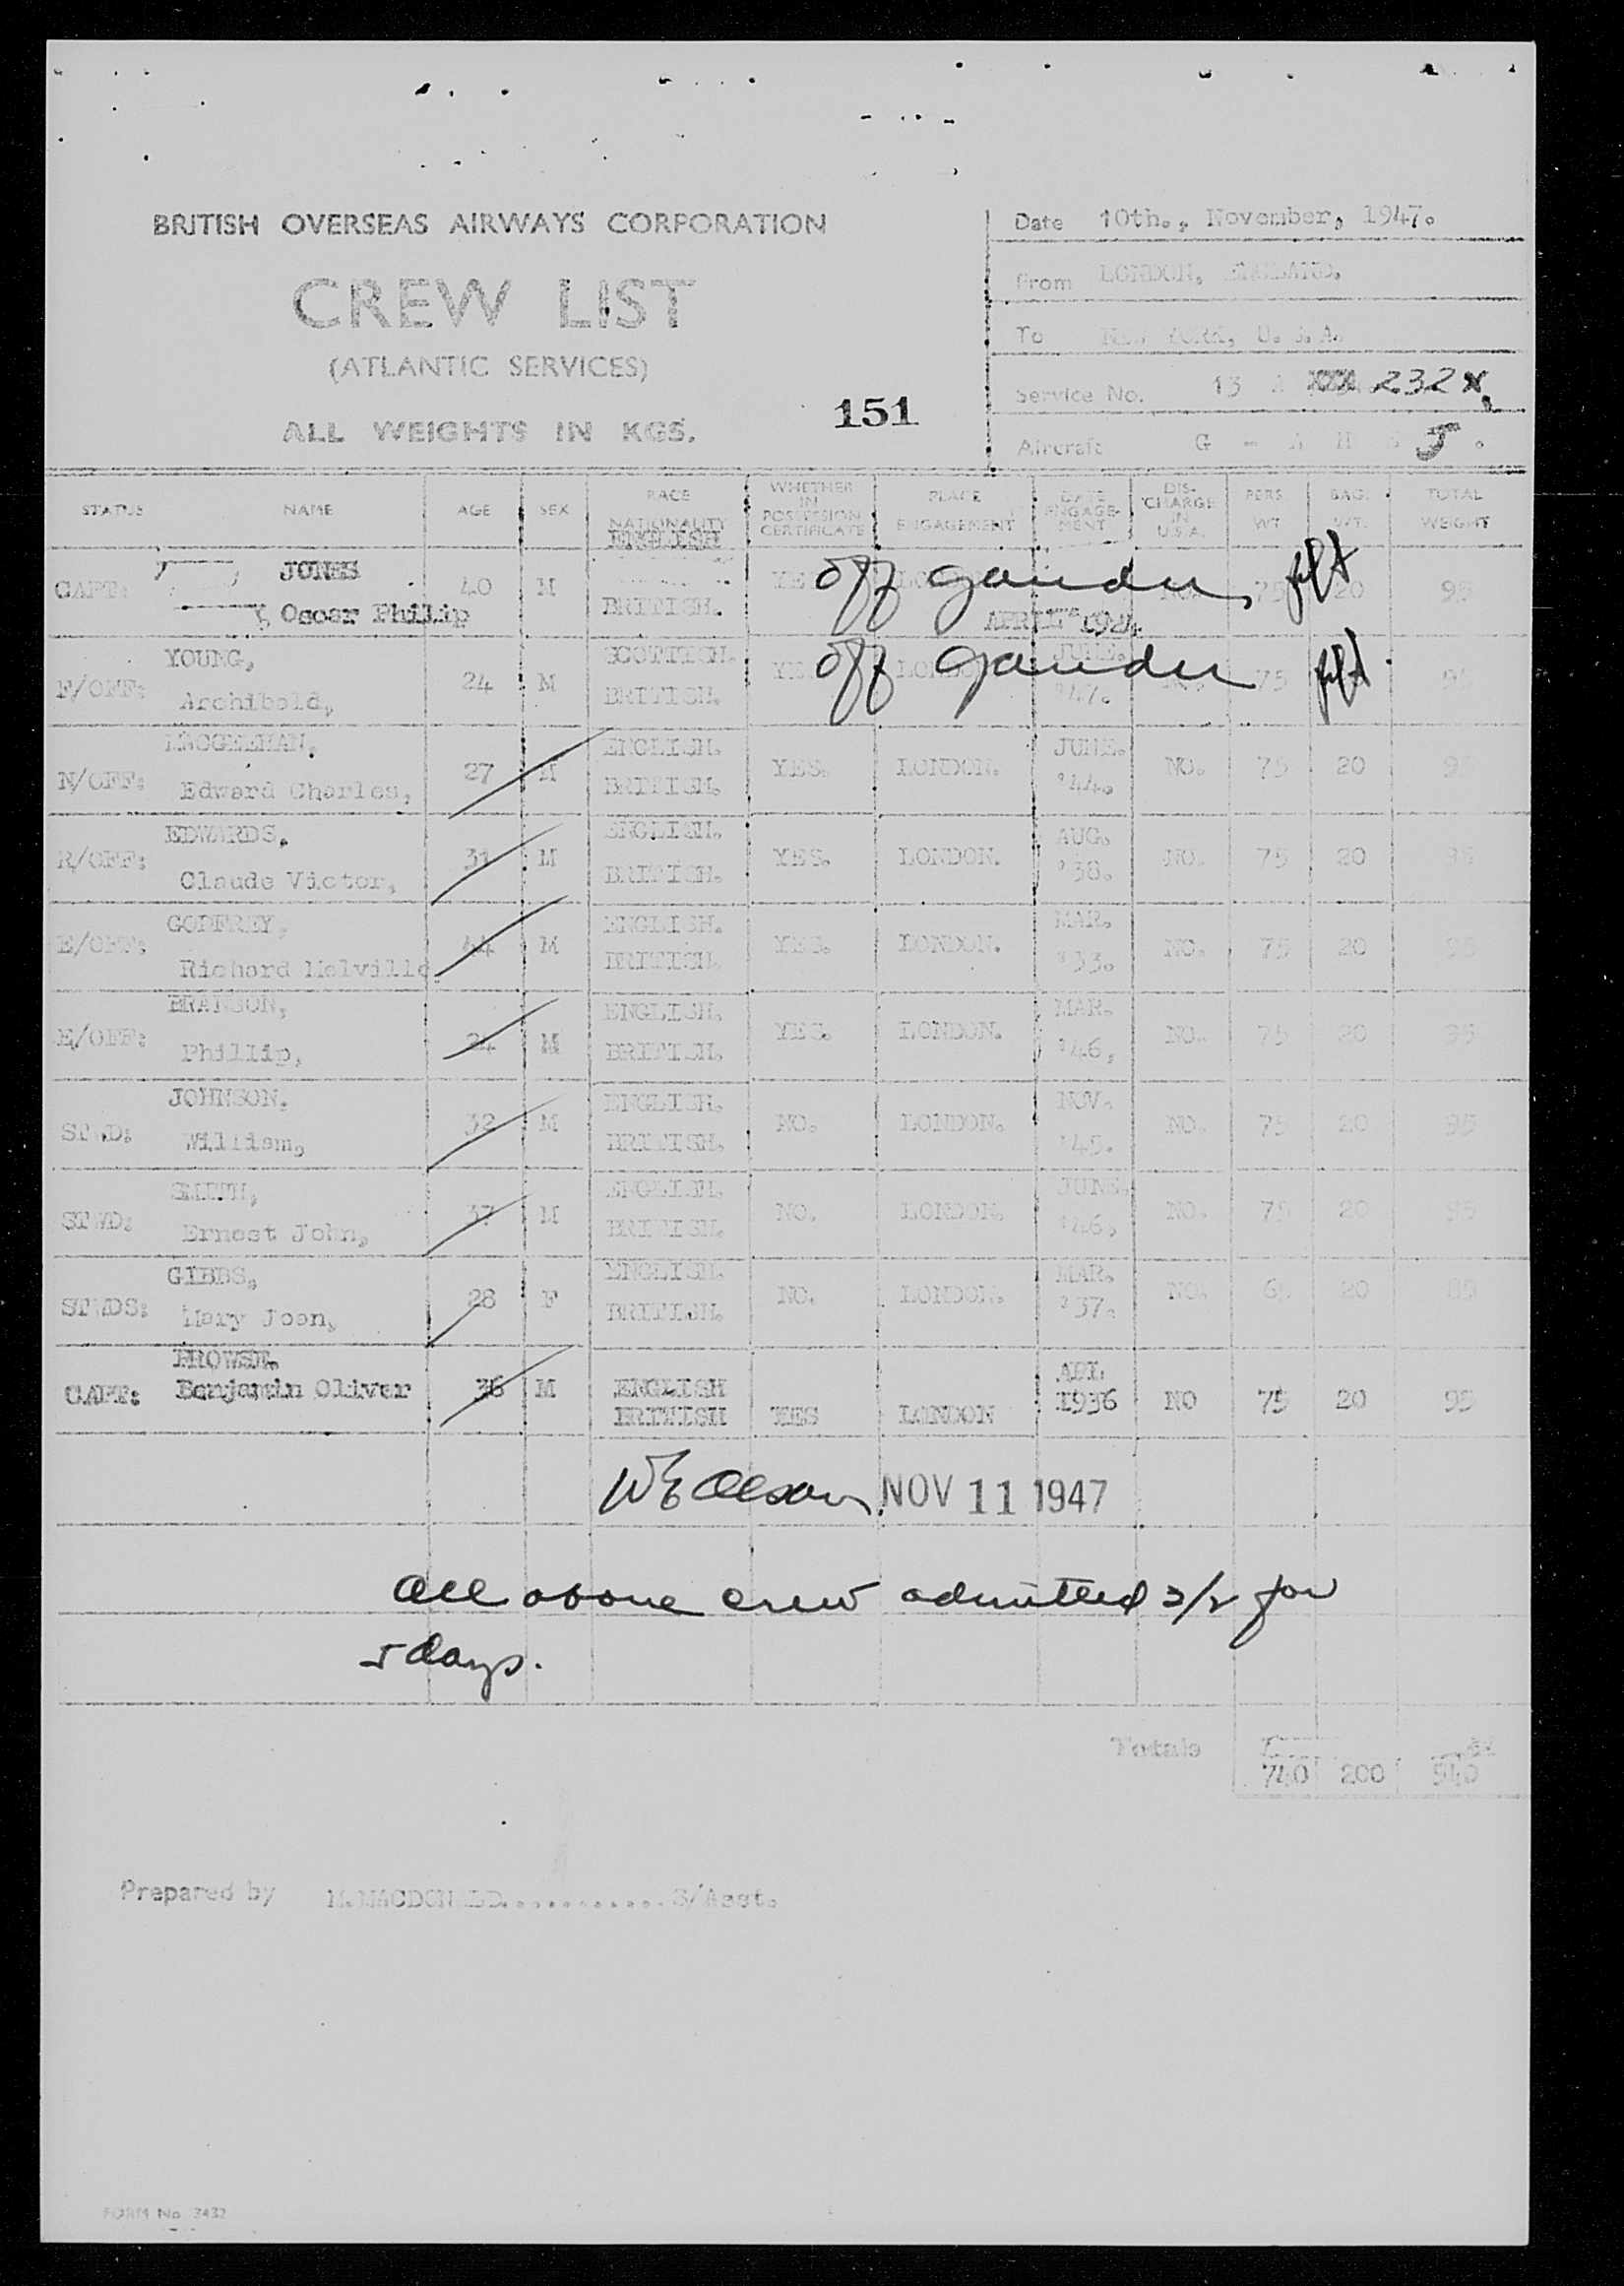 BRITISH OVERSEAS AIRWAYS CORPORATION
CREW LIST
(ATLANTIC SERVICES)
ALL WEIGHTS IN KGS.
151
Date 10th., November, 1947.
From LONDON, ENGLAND.
To NEW YORK, U. S. A.
Service No. 13 A 232
Aircraft G - A H S J .
STATUS NAME AGE SEX RACE NATIONALITY WHETHER IN POSSESSION CERTIFICATE PLACE ENGAGEMENT DATE ENGAGEMENT DISCHARGE IN U.S.A. PERS. WT. BAG. WT. TOTAL WEIGHT
ENGLISH
JONES
CAPT: 40 M YES off Gander, 75 20 95
Oscar Phillip BRITISH. APRIL 1924
YOUNG, SCOTTISH. JUNE.
F/OFF: 24 M YES LONDON off Gander 75 95
Archibald, BRITISH. '47.
ENGLISH. JUNE.
N/OFF: 27 M YES. LONDON. NO. 75 20 95
Edward Charles, BRITISH. '44.
EDWARDS. ENGLISH. AUG.
R/OFF: 31 M YES. LONDON. NO. 75 20 95
Claude Victor, BRITISH. '38.
GODFREY, ENGLISH. MAR.
E/OFF: 44 M YES. LONDON. NO. 75 20 95
Richard Melville BRITISH. '33.
BRANSON, ENGLISH. MAR.
E/OFF: 24 M YES. LONDON. NO. 75 20 95
Phillip, BRITISH. '46,
JOHNSON. ENGLISH. NOV.
STWD: 32 M NO. LONDON. NO. 75 20 95
William, BRITISH. '45.
SMITH, ENGLISH. JUNE.
STWD: 37 M NO. LONDON. NO. 75 20 95
Ernest John, BRITISH. '46,
GIBBS, ENGLISH. MAR.
STWDS: 28 F NO. LONDON. NO. 65 20 85
Mary Joan, BRITISH. '37.
BROWSE.
CAPT: Benjamin Oliver 36 M ENGLISH 1936 NO 75 20 95
BRITISH YES LONDON
W E Olson NOV 11 1947
All above crew admitted 3/2 for
5 days.
Totals
740 200 940
Prepared by M.MACDONALD...........S/Asst.
FORM No 3432